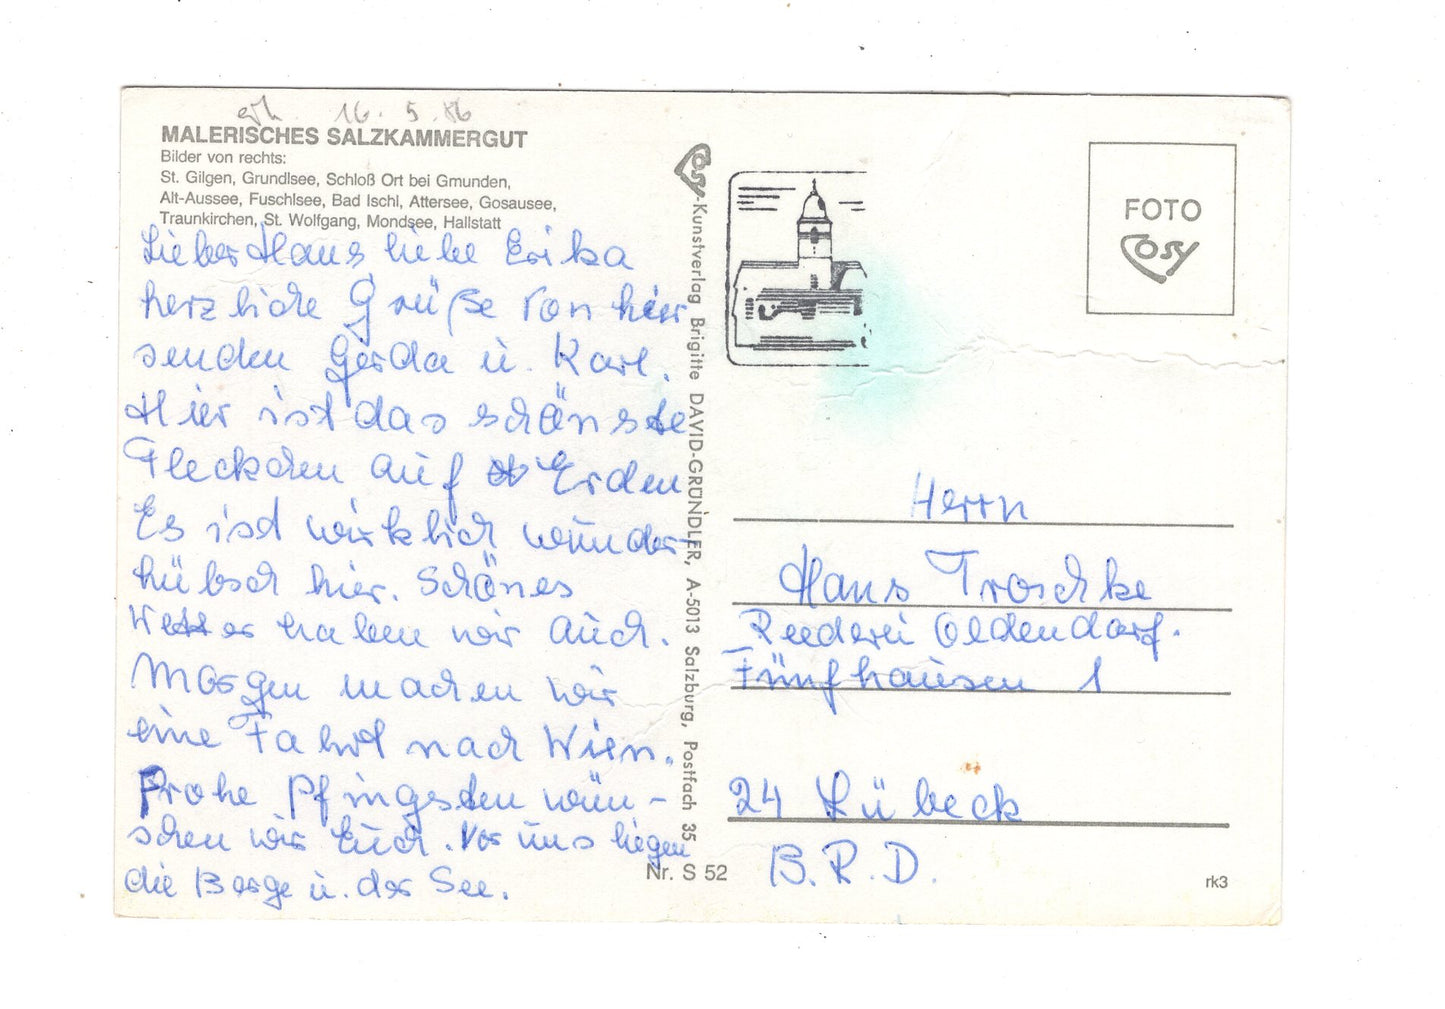 erh. 16. 5. 86
MALERISCHES SALZKAMMERGUT
Bilder von rechts:
St. Gilgen, Grundlsee, Schloß Ort bei Gmunden,
Alt-Aussee, Fuschlsee, Bad Ischl, Attersee, Gosausee,
Traunkirchen, St. Wolfgang, Mondsee, Hallstatt
Lieber Hans liebe Erika
herzliche Grüße von hier
senden Gerda u. Karl.
Hier ist das schönste
Fleckchen auf Erden
Es ist wirklich wunder-
hübsch hier. Schönes
Wetter haben wir auch.
Morgen machen wir
eine Fahrt nach Wien.
Frohe Pfingsten wün-
schen wir Euch. Vor uns liegen
die Berge u. der See.
Cosy-Kunstverlag Brigitte DAVID-GRÜNDLER, A-5013 Salzburg, Postfach 35
Nr. S 52
FOTO
cosy
Herrn
Hans Troschke
Reederei Oldendorf.
Fünfhausen 1
24 Lübeck
B.R.D.
rk3